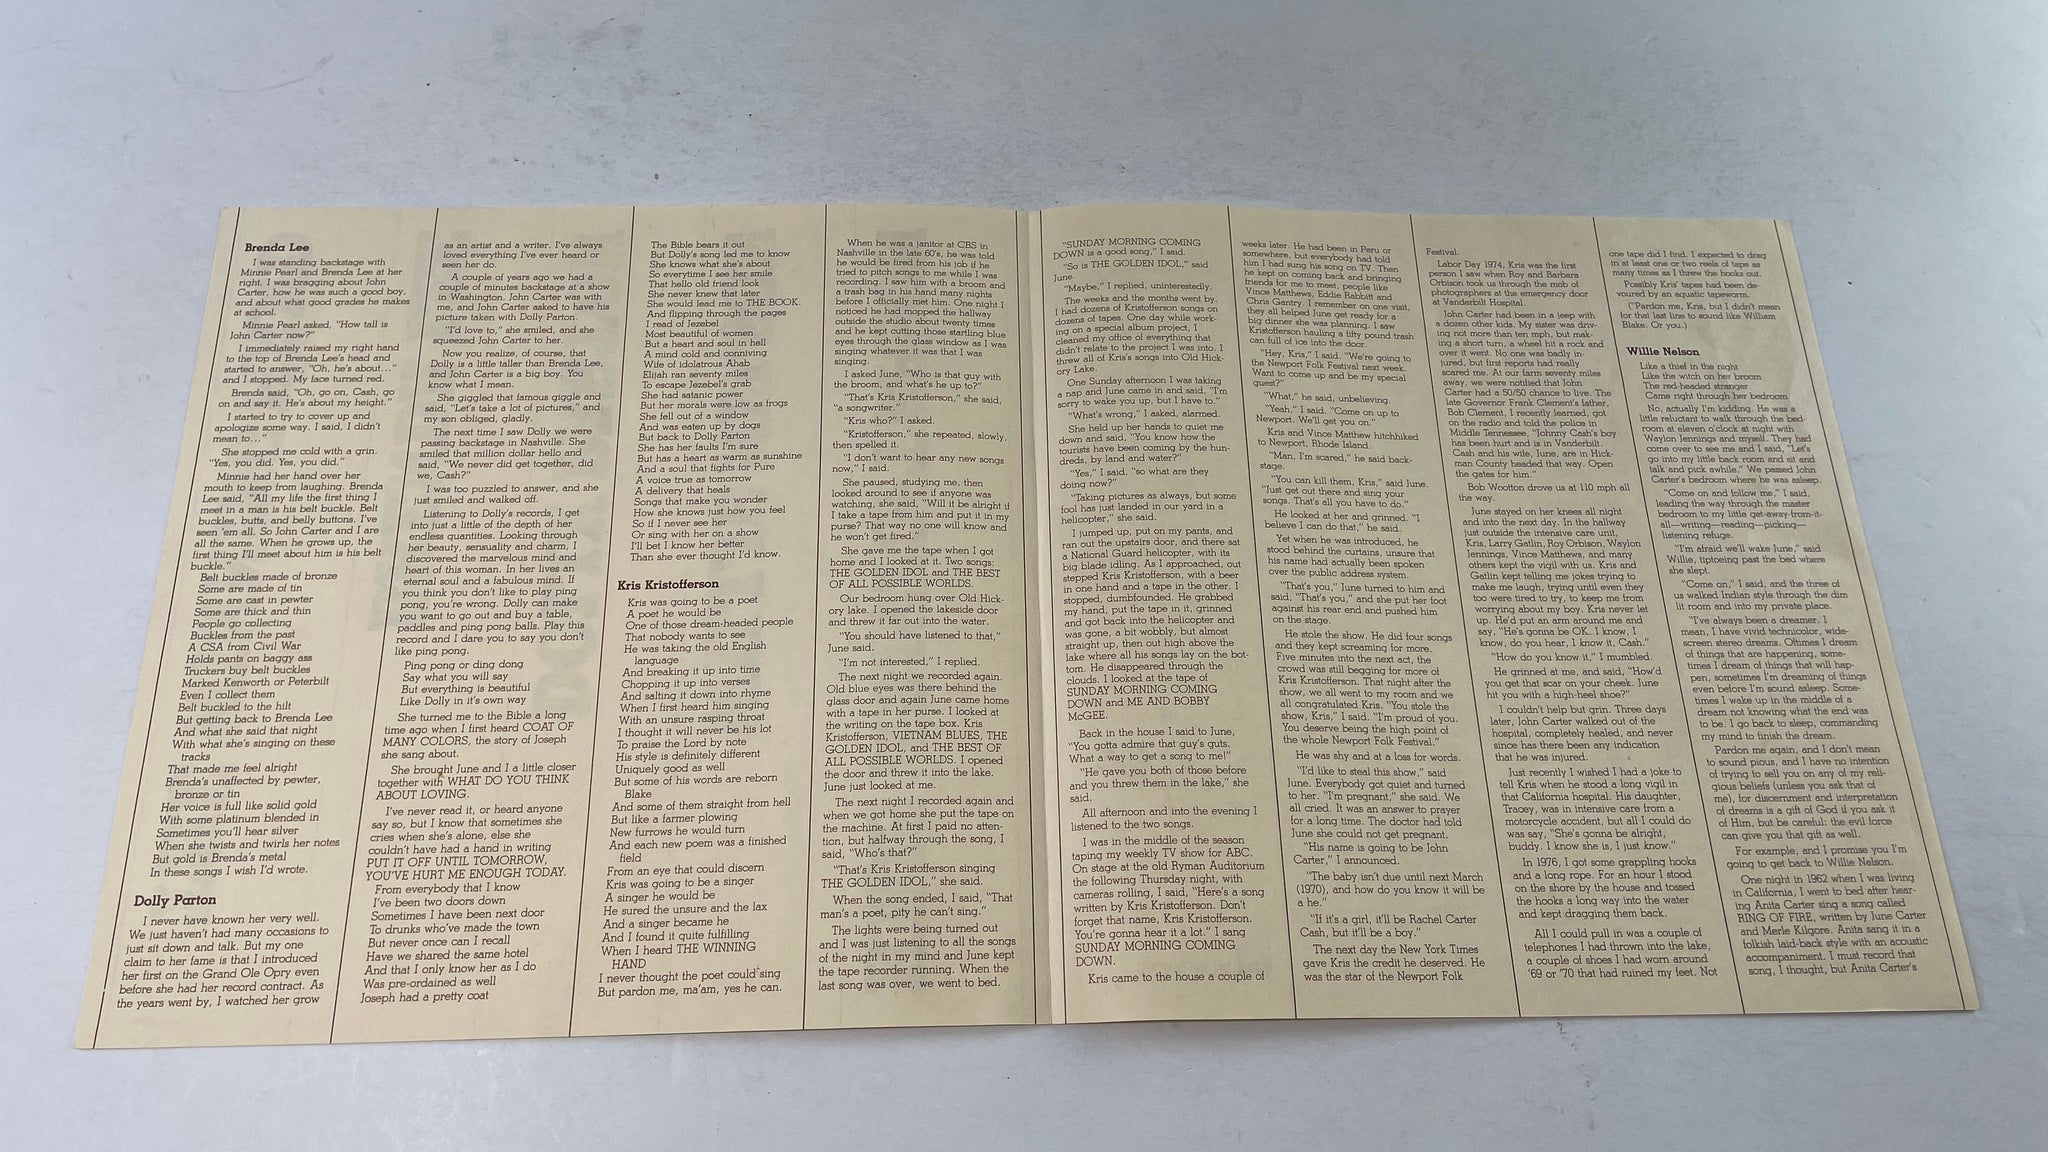 Brenda Lee
I was standing backstage with
Minnie Pearl and Brenda Lee at her
right. I was bragging about John
Carter, how he was such a good boy,
and about what good grades he makes
at school.
Minnie Pearl asked, "How tall is
John Carter now?"
I immediately raised my right hand
to the top of Brenda Lee's head and
started to answer, "Oh, he's about..."
and I stopped. My face turned red.
Brenda said, "Oh, go on, Cash, go
on and say it. He's about my height."
I started to try to cover up and
apologize some way. I said, I didn't
mean to..."
She stopped me cold with a grin.
"Yes, you did. Yes, you did."
Minnie had her hand over her
mouth to keep from laughing. Brenda
Lee said, "All my life the first thing I
meet in a man is his belt buckle. Belt
buckles, butts, and belly buttons. I've
seen 'em all. So John Carter and I are
all the same. When he grows up, the
first thing I'll meet about him is his belt
buckle."
Belt buckles made of bronze
Some are made of tin
Some are cast in pewter
Some are thick and thin
People go collecting
Buckles from the past
A CSA from Civil War
Holds pants on baggy ass
Truckers buy belt buckles
Marked Kenworth or Peterbilt
Even I collect them
Belt buckled to the hilt
But getting back to Brenda Lee
And what she said that night
With what she's singing on these
tracks
That made me feel alright
Brenda's unaffected by pewter,
bronze or tin
Her voice is full like solid gold
With some platinum blended in
Sometimes you'll hear silver
When she twists and twirls her notes
But gold is Brenda's metal
In these songs I wish I'd wrote.
Dolly Parton
I never have known her very well.
We just haven't had many occasions to
just sit down and talk. But my one
claim to her fame is that I introduced
her first on the Grand Ole Opry even
before she had her record contract. As
the years went by, I watched her grow
as an artist and a writer. I've always
loved everything I've ever heard or
seen her do.
A couple of years ago we had a
couple of minutes backstage at a show
in Washington. John Carter was with
me, and John Carter asked to have his
picture taken with Dolly Parton.
"I'd love to," she smiled, and she
squeezed John Carter to her.
Now you realize, of course, that
Dolly is a little taller than Brenda Lee,
and John Carter is a big boy. You
know what I mean.
She giggled that famous giggle and
said, "Let's take a lot of pictures," and
my son obliged, gladly.
The next time I saw Dolly we were
passing backstage in Nashville. She
smiled that million dollar hello and
said, "We never did get together, did
we, Cash?"
I was too puzzled to answer, and she
just smiled and walked off.
Listening to Dolly's records, I get
into just a little of the depth of her
endless quantities. Looking through
her beauty, sensuality and charm, I
discovered the marvelous mind and
heart of this woman. In her lives an
eternal soul and a fabulous mind. If
you think you don't like to play ping
pong, you're wrong. Dolly can make
you want to go out and buy a table,
paddles and ping pong balls. Play this
record and I dare you to say you don't
like ping pong.
Ping pong or ding dong
Say what you will say
But everything is beautiful
Like Dolly in it's own way
She turned me to the Bible a long
time ago when I first heard COAT OF
MANY COLORS, the story of Joseph
she sang about.
She brought June and I a little closer
together with WHAT DO YOU THINK
ABOUT LOVING.
I've never read it, or heard anyone
say so, but I know that sometimes she
cries when she's alone, else she
couldn't have had a hand in writing
PUT IT OFF UNTIL TOMORROW,
YOU'VE HURT ME ENOUGH TODAY.
From everybody that I know
I've been two doors down
Sometimes I have been next door
To drunks who've made the town
But never once can I recall
Have we shared the same hotel
And that I only know her as I do
Was pre-ordained as well
Joseph had a pretty coat
The Bible bears it out
But Dolly's song led me to know
She knows what she's about
So everytime I see her smile
That hello old friend look
She never knew that later
She would lead me to THE BOOK.
And flipping through the pages
I read of Jezebel
Most beautiful of women
But a heart and soul in hell
A mind cold and conniving
Wife of idolatrous Ahab
Elijah ran seventy miles
To escape Jezebel's grab
She had satanic power
But her morals were low as frogs
She fell out of a window
And was eaten up by dogs
But back to Dolly Parton
She has her faults I'm sure
But has a heart as warm as sunshine
And a soul that fights for Pure
A voice true as tomorrow
A delivery that heals
Songs that make you wonder
How she knows just how you feel
So if I never see her
Or sing with her on a show
I'll bet I know her better
Than she ever thought I'd know.
Kris Kristofferson
Kris was going to be a poet
A poet he would be
One of those dream-headed people
That nobody wants to see
He was taking the old English
language
And breaking it up into time
Chopping it up into verses
And salting it down into rhyme
When I first heard him singing
With an unsure rasping throat
I thought it will never be his lot
To praise the Lord by note
His style is definitely different
Uniquely good as well
But some of his words are reborn
Blake
And some of them straight from hell
But like a farmer plowing
New furrows he would turn
And each new poem was a finished
field
From an eye that could discern
Kris was going to be a singer
A singer he would be
He sured the unsure and the lax
And a singer became he
And I found it quite fulfilling
When I heard THE WINNING
HAND
I never thought the poet could sing
But pardon me, ma'am, yes he can.
When he was a janitor at CBS in
Nashville in the late 60's, he was told
he would be fired from his job if he
tried to pitch songs to me while I was
recording. I saw him with a broom and
a trash bag in his hand many nights
before I officially met him. One night I
noticed he had mopped the hallway
outside the studio about twenty times
and he kept cutting those startling blue
eyes through the glass window as I was
singing whatever it was that I was
singing.
I asked June, "Who is that guy with
the broom, and what's he up to?"
"That's Kris Kristofferson," she said,
"a songwriter."
"Kris who?" I asked.
"Kristofferson," she repeated, slowly,
then spelled it.
"I don't want to hear any new songs
now," I said.
She paused, studying me, then
looked around to see if anyone was
watching, she said, "Will it be alright if
I take a tape from him and put it in my
purse? That way no one will know and
he won't get fired."
She gave me the tape when I got
home and I looked at it. Two songs:
THE GOLDEN IDOL and THE BEST
OF ALL POSSIBLE WORLDS.
Our bedroom hung over Old Hick-
ory lake. I opened the lakeside door
and threw it far out into the water.
"You should have listened to that,"
June said.
"I'm not interested," I replied.
The next night we recorded again.
Old blue eyes was there behind the
glass door and again June came home
with a tape in her purse. I looked at
the writing on the tape box. Kris
Kristofferson, VIETNAM BLUES, THE
GOLDEN IDOL, and THE BEST OF
ALL POSSIBLE WORLDS. I opened
the door and threw it into the lake.
June just looked at me.
The next night I recorded again and
when we got home she put the tape on
the machine. At first I paid no atten-
tion, but halfway through the song, I
said, "Who's that?"
"That's Kris Kristofferson singing
THE GOLDEN IDOL," she said.
When the song ended, I said, "That
man's a poet, pity he can't sing."
The lights were being turned out
and I was just listening to all the songs
of the night in my mind and June kept
the tape recorder running. When the
last song was over, we went to bed.
"SUNDAY MORNING COMING
DOWN is a good song," I said.
"So is THE GOLDEN IDOL," said
June.
"Maybe," I replied, uninterestedly.
The weeks and the months went by.
I had dozens of Kristofferson songs on
dozens of tapes. One day while work-
ing on a special album project, I
cleaned my office of everything that
didn't relate to the project I was into. I
threw all of Kris's songs into Old Hick-
ory Lake.
One Sunday afternoon I was taking
a nap and June came in and said, "I'm
sorry to wake you up, but I have to."
"What's wrong," I asked, alarmed.
She held up her hands to quiet me
down and said, "You know how the
tourists have been coming by the hun-
dreds, by land and water?"
"Yes," I said, "so what are they
doing now?"
"Taking pictures as always, but some
fool has just landed in our yard in a
helicopter," she said.
I jumped up, put on my pants, and
ran out the upstairs door, and there sat
a National Guard helicopter, with its
big blade idling. As I approached, out
stepped Kris Kristofferson, with a beer
in one hand and a tape in the other. I
stopped, dumbfounded. He grabbed
my hand, put the tape in it, grinned
and got back into the helicopter and
was gone, a bit wobbly, but almost
straight up, then out high above the
lake where all his songs lay on the bot-
tom. He disappeared through the
clouds. I looked at the tape of
SUNDAY MORNING COMING
DOWN and ME AND BOBBY
McGEE.
Back in the house I said to June,
"You gotta admire that guy's guts.
What a way to get a song to me!"
"He gave you both of those before
and you threw them in the lake," she
said.
All afternoon and into the evening I
listened to the two songs.
I was in the middle of the season
taping my weekly TV show for ABC.
On stage at the old Ryman Auditorium
the following Thursday night, with
cameras rolling, I said, "Here's a song
written by Kris Kristofferson. Don't
forget that name, Kris Kristofferson.
You're gonna hear it a lot." I sang
SUNDAY MORNING COMING
DOWN.
Kris came to the house a couple of
weeks later. He had been in Peru or
somewhere, but everybody had told
him I had sung his song on TV. Then
he kept on coming back and bringing
friends for me to meet, people like
Vince Matthews, Eddie Rabbitt and
Chris Gantry. I remember on one visit,
they all helped June get ready for a
big dinner she was planning. I saw
Kristofferson hauling a fifty pound trash
can full of ice into the door.
"Hey, Kris," I said. "We're going to
the Newport Folk Festival next week.
Want to come up and be my special
guest?"
"What," he said, unbelieving.
"Yeah," I said. "Come on up to
Newport. We'll get you on."
Kris and Vince Matthew hitchhiked
to Newport, Rhode Island.
"Man, I'm scared," he said back-
stage.
"You can kill them, Kris," said June.
"Just get out there and sing your
songs. That's all you have to do."
He looked at her and grinned. "I
believe I can do that," he said.
Yet when he was introduced, he
stood behind the curtains, unsure that
his name had actually been spoken
over the public address system.
"That's you," June turned to him and
said, "That's you," and she put her foot
against his rear end and pushed him
on the stage.
He stole the show. He did four songs
and they kept screaming for more.
Five minutes into the next act, the
crowd was still begging for more of
Kris Kristofferson. That night after the
show, we all went to my room and we
all congratulated Kris. "You stole the
show, Kris," I said. "I'm proud of you.
You deserve being the high point of
the whole Newport Folk Festival."
He was shy and at a loss for words.
"I'd like to steal this show," said
June. Everybody got quiet and turned
to her. "I'm pregnant," she said. We
all cried. It was an answer to prayer
for a long time. The doctor had told
June she could not get pregnant.
"His name is going to be John
Carter," I announced.
"The baby isn't due until next March
(1970), and how do you know it will be
a he."
"If it's a girl, it'll be Rachel Carter
Cash, but it'll be a boy."
The next day the New York Times
gave Kris the credit he deserved. He
was the star of the Newport Folk
Festival.
Labor Day 1974, Kris was the first
person I saw when Roy and Barbara
Orbison took us through the mob of
photographers at the emergency door
at Vanderbilt Hospital.
John Carter had been in a jeep with
a dozen other kids. My sister was driv-
ing not more than ten mph, but mak-
ing a short turn, a wheel hit a rock and
over it went. No one was badly in-
jured, but first reports had really
scared me. At our farm seventy miles
away, we were notified that John
Carter had a 50/50 chance to live. The
late Governor Frank Clement's father,
Bob Clement, I recently learned, got
on the radio and told the police in
Middle Tennessee, "Johnny Cash's boy
has been hurt and is in Vanderbilt.
Cash and his wife, June, are in Hick-
man County headed that way. Open
the gates for him."
Bob Wootton drove us at 110 mph all
the way.
June stayed on her knees all night
and into the next day. In the hallway
just outside the intensive care unit,
Kris, Larry Gatlin, Roy Orbison, Waylon
Jennings, Vince Matthews, and many
others kept the vigil with us. Kris and
Gatlin kept telling me jokes trying to
make me laugh, trying until even they
too were tired to try, to keep me from
worrying about my boy. Kris never let
up. He'd put an arm around me and
say, "He's gonna be OK. I know, I
know, do you hear, I know it, Cash."
"How do you know it," I mumbled.
He grinned at me, and said, "How'd
you get that scar on your cheek. June
hit you with a high-heel shoe?"
I couldn't help but grin. Three days
later, John Carter walked out of the
hospital, completely healed, and never
since has there been any indication
that he was injured.
Just recently I wished I had a joke to
tell Kris when he stood a long vigil in
that California hospital. His daughter,
Tracey, was in intensive care from a
motorcycle accident, but all I could do
was say, "She's gonna be alright,
buddy. I know she is, I just know."
In 1976, I got some grappling hooks
and a long rope. For an hour I stood
on the shore by the house and tossed
the hooks a long way into the water
and kept dragging them back.
All I could pull in was a couple of
telephones I had thrown into the lake,
a couple of shoes I had worn around
'69 or '70 that had ruined my feet. Not
one tape did I find. I expected to drag
in at least one or two reels of tape as
many times as I threw the hooks out.
Possibly Kris' tapes had been de-
voured by an aquatic tapeworm.
("Pardon me, Kris, but I didn't mean
for that last line to sound like William
Blake. Or you.)
Willie Nelson
Like a thief in the night
Like the witch on her broom
The red-headed stranger
Came right through her bedroom
No, actually I'm kidding. He was a
little reluctant to walk through the bed-
room at eleven o'clock at night with
Waylon Jennings and myself. They had
come over to see me and I said, "Let's
go into my little back room and sit and
talk and pick awhile." We passed John
Carter's bedroom where he was asleep.
"Come on and follow me," I said,
leading the way through the master
bedroom to my little get-away-from-it-
all—writing—reading—picking—
listening refuge.
"I'm afraid we'll wake June," said
Willie, tiptoeing past the bed where
she slept.
"Come on," I said, and the three of
us walked Indian style through the dim
lit room and into my private place.
"I've always been a dreamer. I
mean, I have vivid technicolor, wide-
screen stereo dreams. Oftimes I dream
of things that are happening, some-
times I dream of things that will hap-
pen, sometimes I'm dreaming of things
even before I'm sound asleep. Some-
times I wake up in the middle of a
dream not knowing what the end was
to be. I go back to sleep, commanding
my mind to finish the dream.
Pardon me again, and I don't mean
to sound pious, and I have no intention
of trying to sell you on any of my reli-
gious beliefs (unless you ask that of
me), for discernment and interpretation
of dreams is a gift of God if you ask it
of Him, but be careful: the evil force
can give you that gift as well.
For example, and I promise you I'm
going to get back to Willie Nelson.
One night in 1962 when I was living
in California, I went to bed after hear-
ing Anita Carter sing a song called
RING OF FIRE, written by June Carter
and Merle Kilgore. Anita sang it in a
folkish laid-back style with an acoustic
accompaniment. I must record that
song, I thought, but Anita Carter's